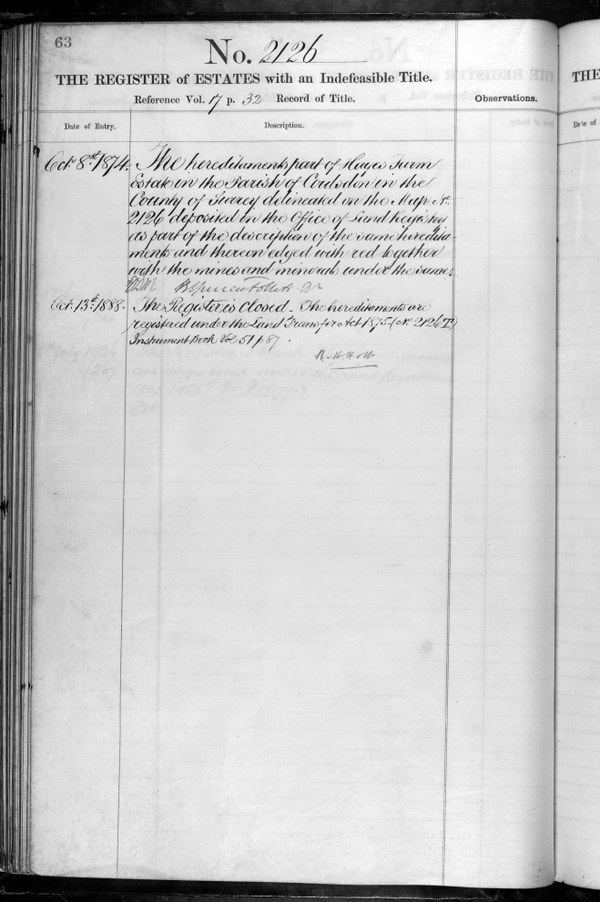 63
No. 2126
THE REGISTER of ESTATES with an Indefeasible Title.
Reference Vol. 17 p. 32 Record of Title.
Observations.
Date of Entry.
Description.
Oct. 8th 1874.
The hereditaments part of Hayes Farm
Estate in the Parish of Coulsdon in the
County of Surrey delineated on the Map No.
2126 deposited in the Office of Land Registry
as part of the description of the same heredita-
ments and thereon edged with red together
with the mines and minerals under the same.
Oct. 13th 1888.
The Register is Closed. The hereditaments are
registered under the Land Transfer Act 1875 (No. 2126
Instrument Book Vol. 51 p. 87.
THE